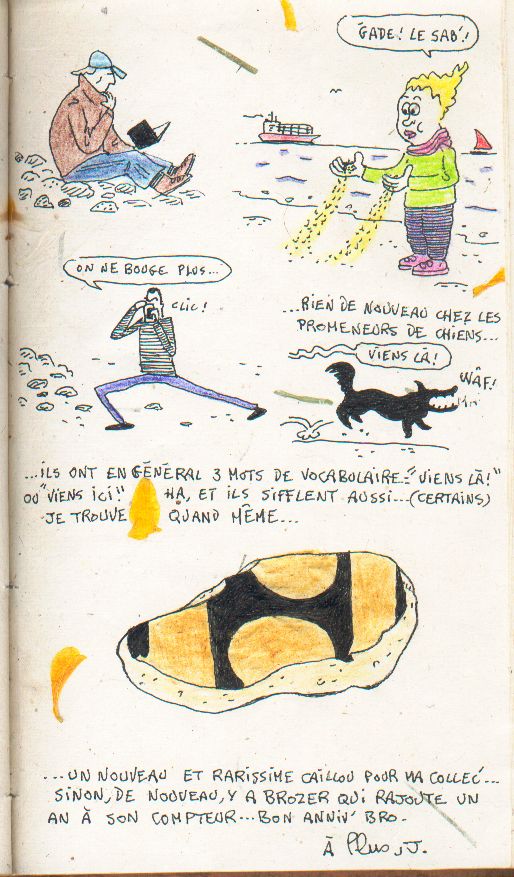 'GADE! LE SAB'!
ON NE BOUGE PLUS...
CLIC!
...RIEN DE NOUVEAU CHEZ LES
PROMENEURS DE CHIENS...
VIENS LÀ!
WÂF!
...ILS ONT EN GÉNÉRAL 3 MOTS DE VOCABULAIRE: "VIENS LÀ!"
OU "VIENS ICI!" HA, ET ILS SIFFLENT AUSSI...(CERTAINS)
JE TROUVE QUAND MÊME...
...UN NOUVEAU ET RARISSIME CAILLOU POUR MA COLLEC'...
SINON, DE NOUVEAU, Y A BROZER QUI RAJOUTE UN
AN À SON COMPTEUR...BON ANNIV' BRO.
À Plus, J.